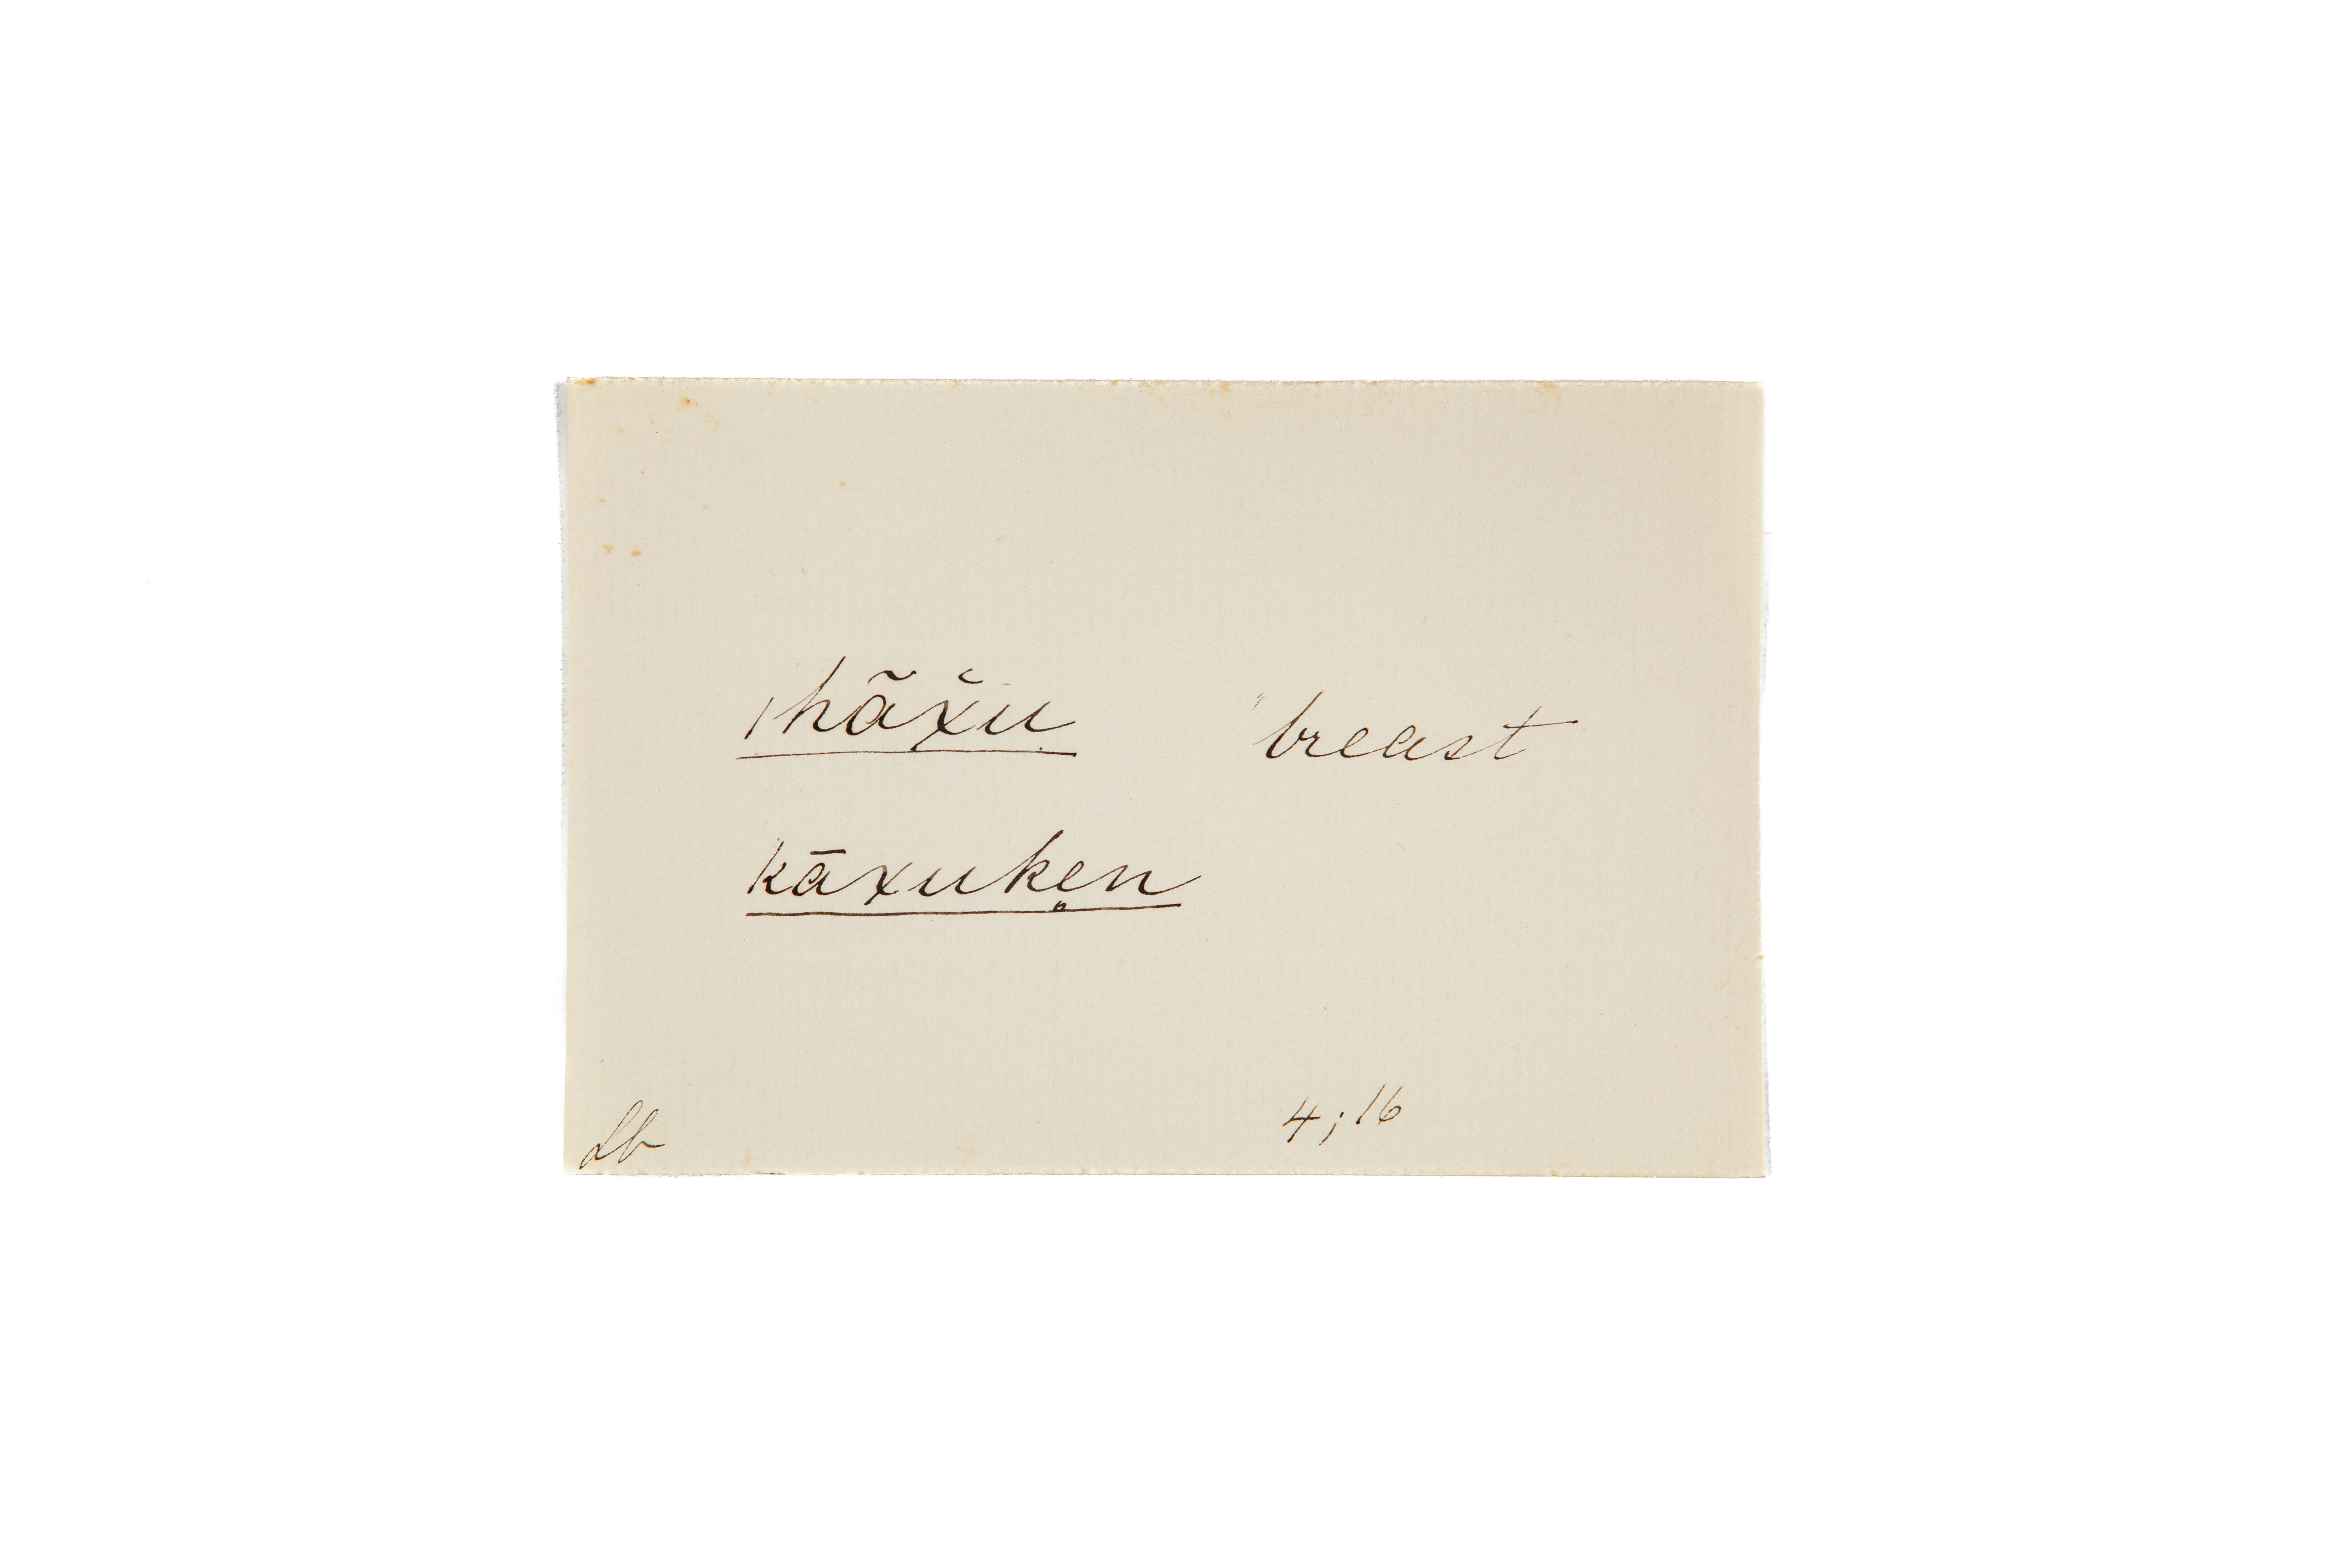 ǀhãx̆u breast
kāxuk̥en
Lb 4; 16